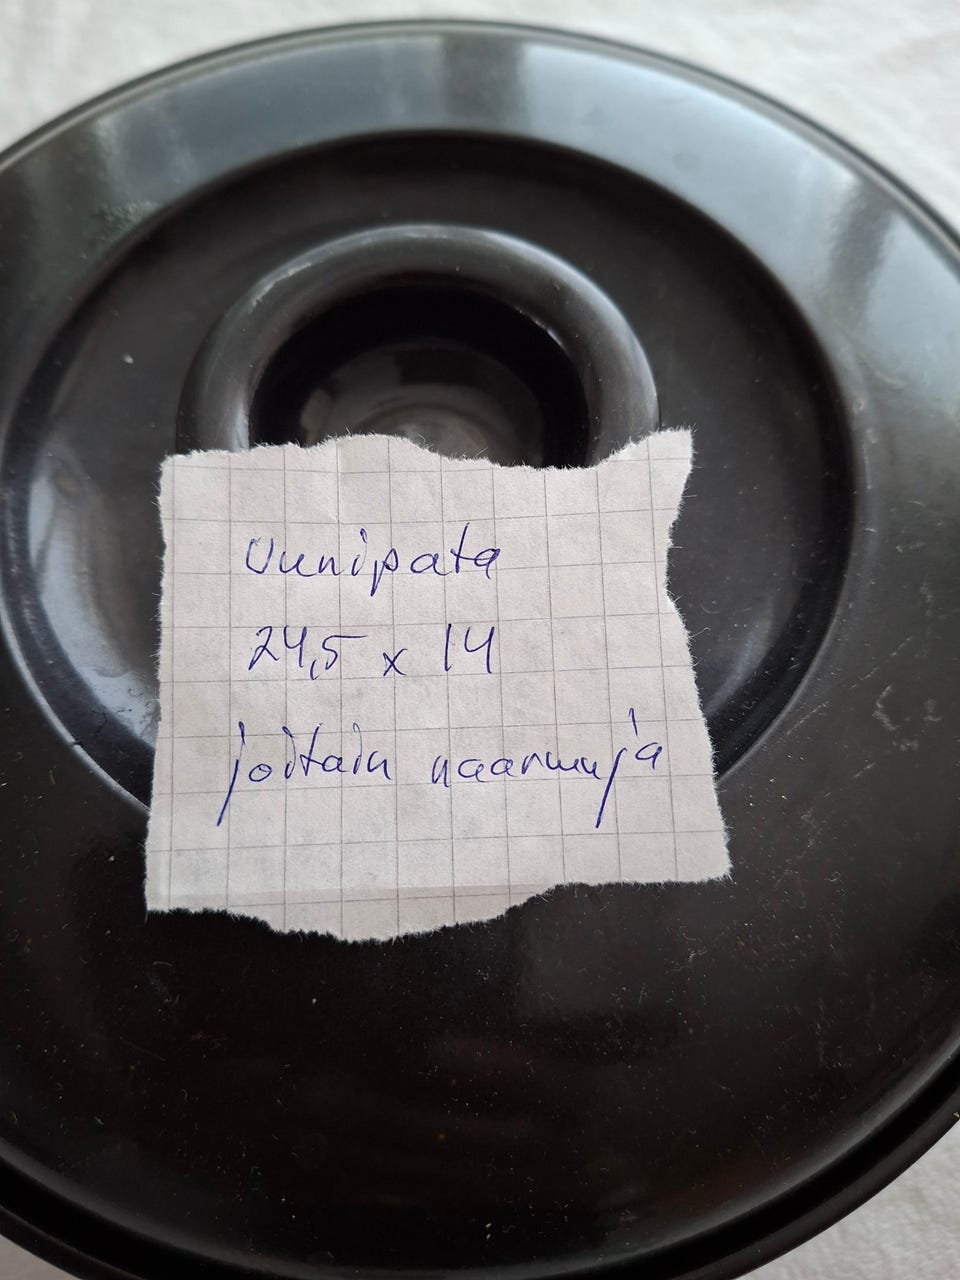 Uunipata
24,5 x 14
joitain naarmuja